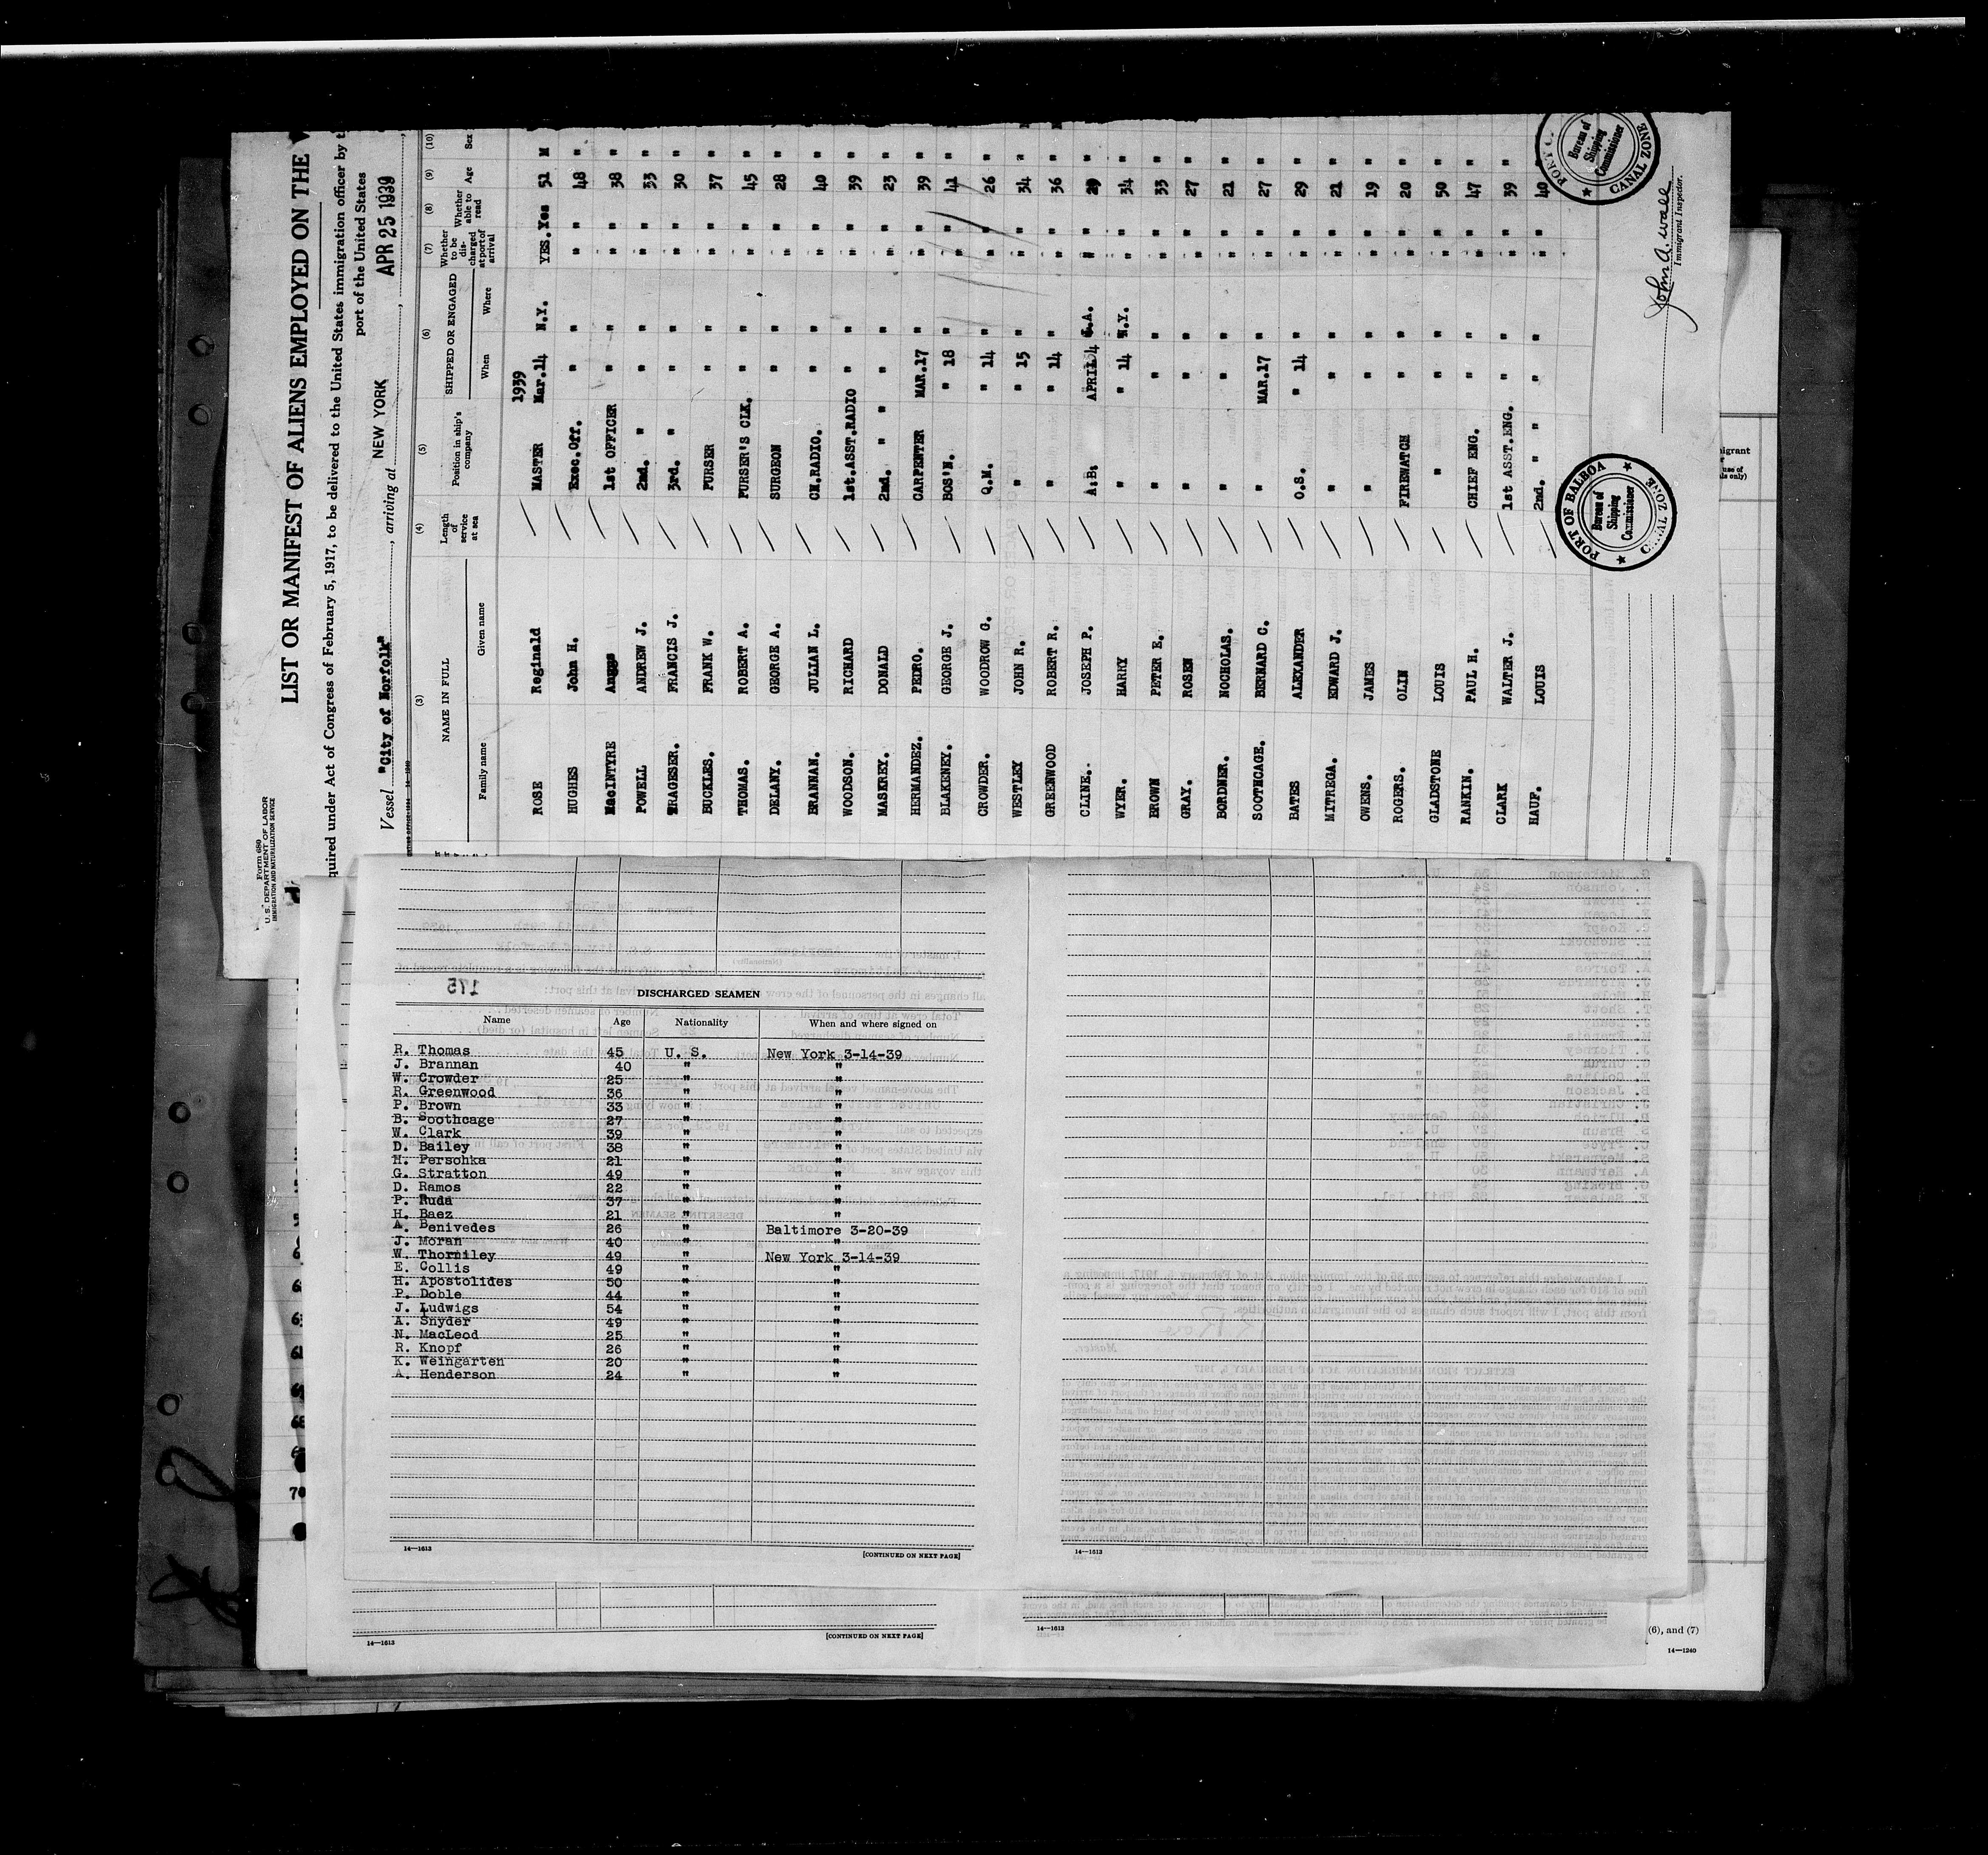 Form 680
U. S. DEPARTMENT OF LABOR
IMMIGRATION AND NATURALIZATION SERVICE
LIST OR MANIFEST OF ALIENS EMPLOYED ON THE
quired under Act of Congress of February 5, 1917, to be delivered to the United States immigration officer by t
port of the United States
Vessel "City of Norfolk", arriving at NEW YORK, APR 25 1939,
(3) (4) (5) (6) (7) (8) (9) (10)
NAME IN FULL Length of service at sea Position in ship's company SHIPPED OR ENGAGED Whether to be discharged at port of arrival Whether able to read Age Sex
Family name Given name When Where
1939
ROSE Reginald MASTER Mar.14 N.Y. YES. Yes 51 M
HUGHES John H. Exec.Off. " " " " 48 "
MacINTYRE Angus 1st OFFICER " " " " 38 "
POWELL ANDREW J. 2nd. " " " " " 33 "
TRAGESER. FRANCIS J. 3rd. " " " " " 30 "
BUCKLES. FRANK W. PURSER " " " " 37 "
THOMAS. ROBERT A. PURSER'S CLK. " " " " 45 "
DELANY. GEORGE A. SURGEON " " " " 28 "
BRANNAN. JULIAN L. CH.RADIO. " " " " 40 "
WOODSON. RICHARD 1st.ASST.RADIO " " " " 39 "
MASKEY. DONALD 2nd. " " " " " " 23 "
HERMANDEZ. PEDRO. CARPENTER MAR.17 " " " 39 "
BLAKENEY. GEORGE J. BOS'N. " 18 " " " 41 "
CROWDER. WOODROW G. Q.M. " 14 " " " 26 "
WESTLEY JOHN R. " " 15 " " " 34 "
GREENWOOD ROBERT R. " " 14 " " " 36 "
CLINE. JOSEPH P. A.B. APRIL 4 " " 29 "
WYER. HARRY " " 14 N.Y. " " 24 "
BROWN PETER E. " " " " " 33 "
GRAY. ROSEN " " " " " 27 "
BORDNER. NOCHOLAS. " " " " " 21 "
SOOTHCAGE. BERNARD C. " MAR.17 " " " 27 "
BATES ALEXANDER O.S. " 14 " " " 29 "
MITREGA. EDWARD J. " " " " " 21 "
OWENS. JAMES " " " " " 19 "
ROGERS. OLIN FIREWATCH " " " " 20 "
GLADSTONE LOUIS " " " " " 50 "
RANKIN. PAUL H. CHIEF ENG. " " " " 47 "
CLARK WALTER J. 1st ASST.ENG. " " " " 39 "
HAUF. LOUIS 2nd. " " " " " " 40 "
PORT OF BALBOA
Bureau of Shipping Commissioner
CANAL ZONE
Bureau of Shipping Commissioner
CANAL ZONE
John A. Wall
Immigrant Inspector.
175
DISCHARGED SEAMEN
Name Age Nationality When and where signed on
R. Thomas 45 U. S. New York 3-14-39
J. Brannan 40 " "
W. Crowder 25 " "
R. Greenwood 36 " "
P. Brown 33 " "
B. Soothcage 27 " "
W. Clark 39 " "
D. Bailey 38 " "
H. Pershka 21 " "
G. Stratton 49 " "
D. Ramos 22 " "
P. Ruda 37 " "
H. Baez 21 " "
A. Benivedes 26 " Baltimore 3-20-39
J. Moran 40 " "
W. Thorniley 49 " New York 3-14-39
E. Collis 49 " "
H. Apostolides 50 " "
P. Doble 44 " "
J. Ludwigs 54 " "
A. Snyder 49 " "
N. MacLeod 25 " "
R. Knopf 26 " "
K. Weingarten 20 " "
A. Henderson 24 " "
14—1613 [CONTINUED ON NEXT PAGE]
14—1613
14—1613 [CONTINUED ON NEXT PAGE]
14—1613
(6), and (7)
14—1240
70